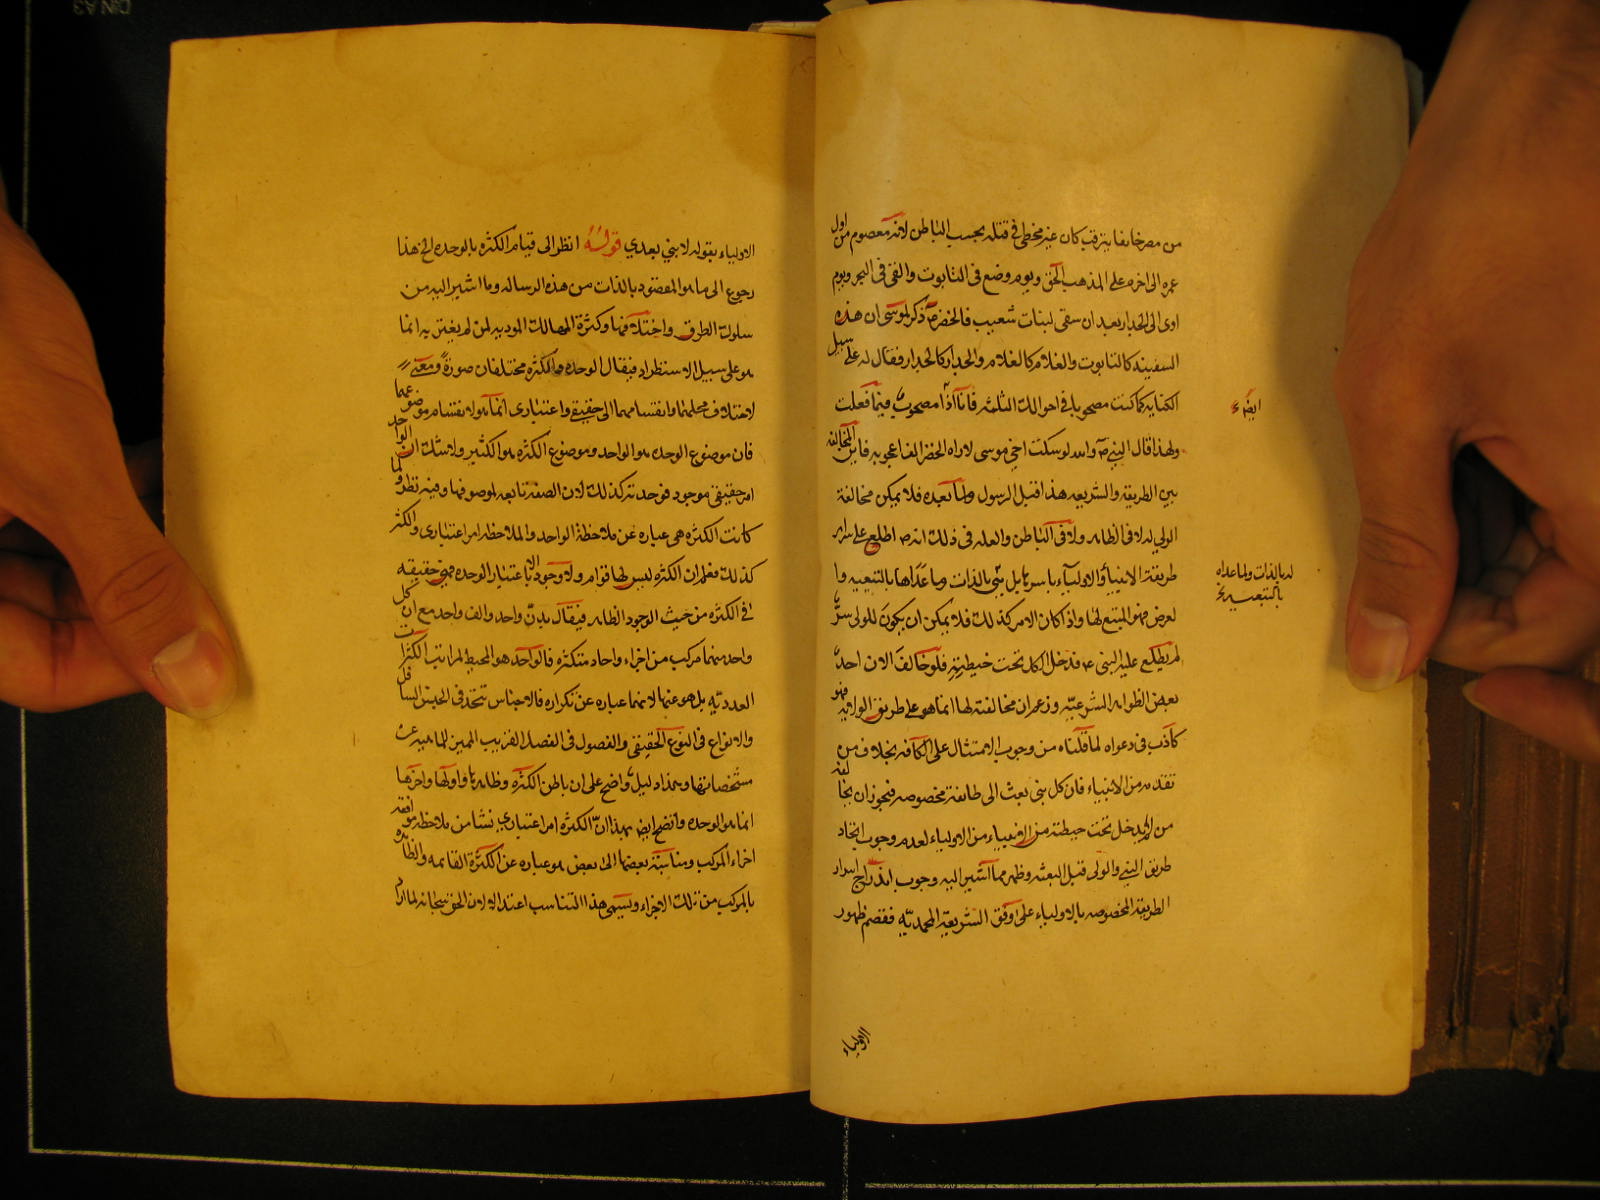 من مصر خايفا يترقب كان غير مخطئ في قتله بحسب الباطن لانه معصوم من اول
عمره الى اخره على المذهب الحق ويوم وضع في التابوت والقى في البحر ويوم
اوى الى الجدار بعد ان سقى لبنات شعيب فالخضر ذكر لموسى ان هذه
السفينه كالتابوت والغلام كالغلام والجدار كالجدار فقال له على سبيل
الكنايه كما كنت مصحوبا في احوالك الثلثه فانا اذا مصحوب فيما فعلت
ايضا
ولهذا قال النبي ص والله لو سكت اخي موسى لاراه الخضر الف اعجوبه فاين المخالفه
بين الطريقه والشريعه هذا قبل الرسول واما بعده فلا يمكن مخالفة
الولي له لا في الظاهر ولا في الباطن والعله في ذلك انه ص اطلع على اسرار
طريقة الانبياء والاولياء باسرها بل هي بالذات وما عداها بالتبعيه وا
له بالذات ولما عداه
بالتبعيه
لعرض فهو المتبع لها واذا كان الامر كذلك فلا يمكن ان يكون للولى سرّ
لم يطلع عليه النبى قد دخل الكل تحت حيطته فلو خالف الان احد
بعض الظواهر الشرعيّه وزعم ان مخالفته لها انما هو على طريق الولايه فهو
كاذب في دعواه لما قلناه من وجوب الامتثال على الكافه بخلاف من
تقدمه من الانبياء فان كل نبى بعث الى طائفة مخصوصه فيجوز ان يخالفه
من لم يدخل تحت حيطته من الانبياء من الاولياء لعدم وجوب اتحاد
طريق النبي والولى قبل البعثه وظهر مما اشير اليه وجوب اندراج اسرار
الطريقة المخصوصه بالاولياء على وفق الشريعة المحمديّه فقصم ظهور
الاولياء
الاولياء بقوله لا نبي بعدي قوله انظر الى قيام الكثره بالوحده الخ هذا
رجوع الى ما هو المقصود بالذات من هذه الرساله وما اشير اليه من
سلوك الطرق واختلافها وكثرة المهالك الموديه لمن لم يغتر به انما
هو على سبيل الاستطراد فيقال الوحده والكثره مختلفان صورة ومعنى
لاختلاف محلهما وانقسامهما الى حقيقى واعتبارى انما هو لانقسام موضوعهما
فان موضوع الوحده هو الواحد وموضوع الكثره هو الكثير ولا شك ان الواحد
امر حقيقي موجود فوحدته كذلك لان الصفة تابعه لموصوفها وفيه نظر ولما
كانت الكثره هي عباره عن ملاحظة الواحد والملاحظه امر اعتبارى والكثر
كذلك فظهر ان الكثره ليس لها قوام ولا وجود الا باعتبار الوحده فهى حقيقه
في الكثره من حيث الوجود الظاهر فيقال بدن واحد والف واحد مع ان كل
واحد منهما مركب من اجزاء واحاد متكثره فالواحد هو المحيط لمراتب الكثرات
العدديّه بل هو عينها لانها عباره عن تكراره فالاجناس تتحد في الجنس السافل
والانواع في النوع الحقيقى والفصول في الفصل القريب المميز للماهيه عن
مشخصاتها وهذا دليل واضح على ان باطن الكثره وظاهرها واولها واخرها
انما هو الوحده واتضح ايضا بهذا ان الكثره امر اعتباري نشا من ملاحظه موافقه
اجزاء المركب ومناسبة بعضها الى بعض هو عباره عن الكثرة القائمه والظاهره
بالمركب من تلك الاجزاء ويسمى هذا التناسب اعتدالا لان الحق سبحانه لما اراد